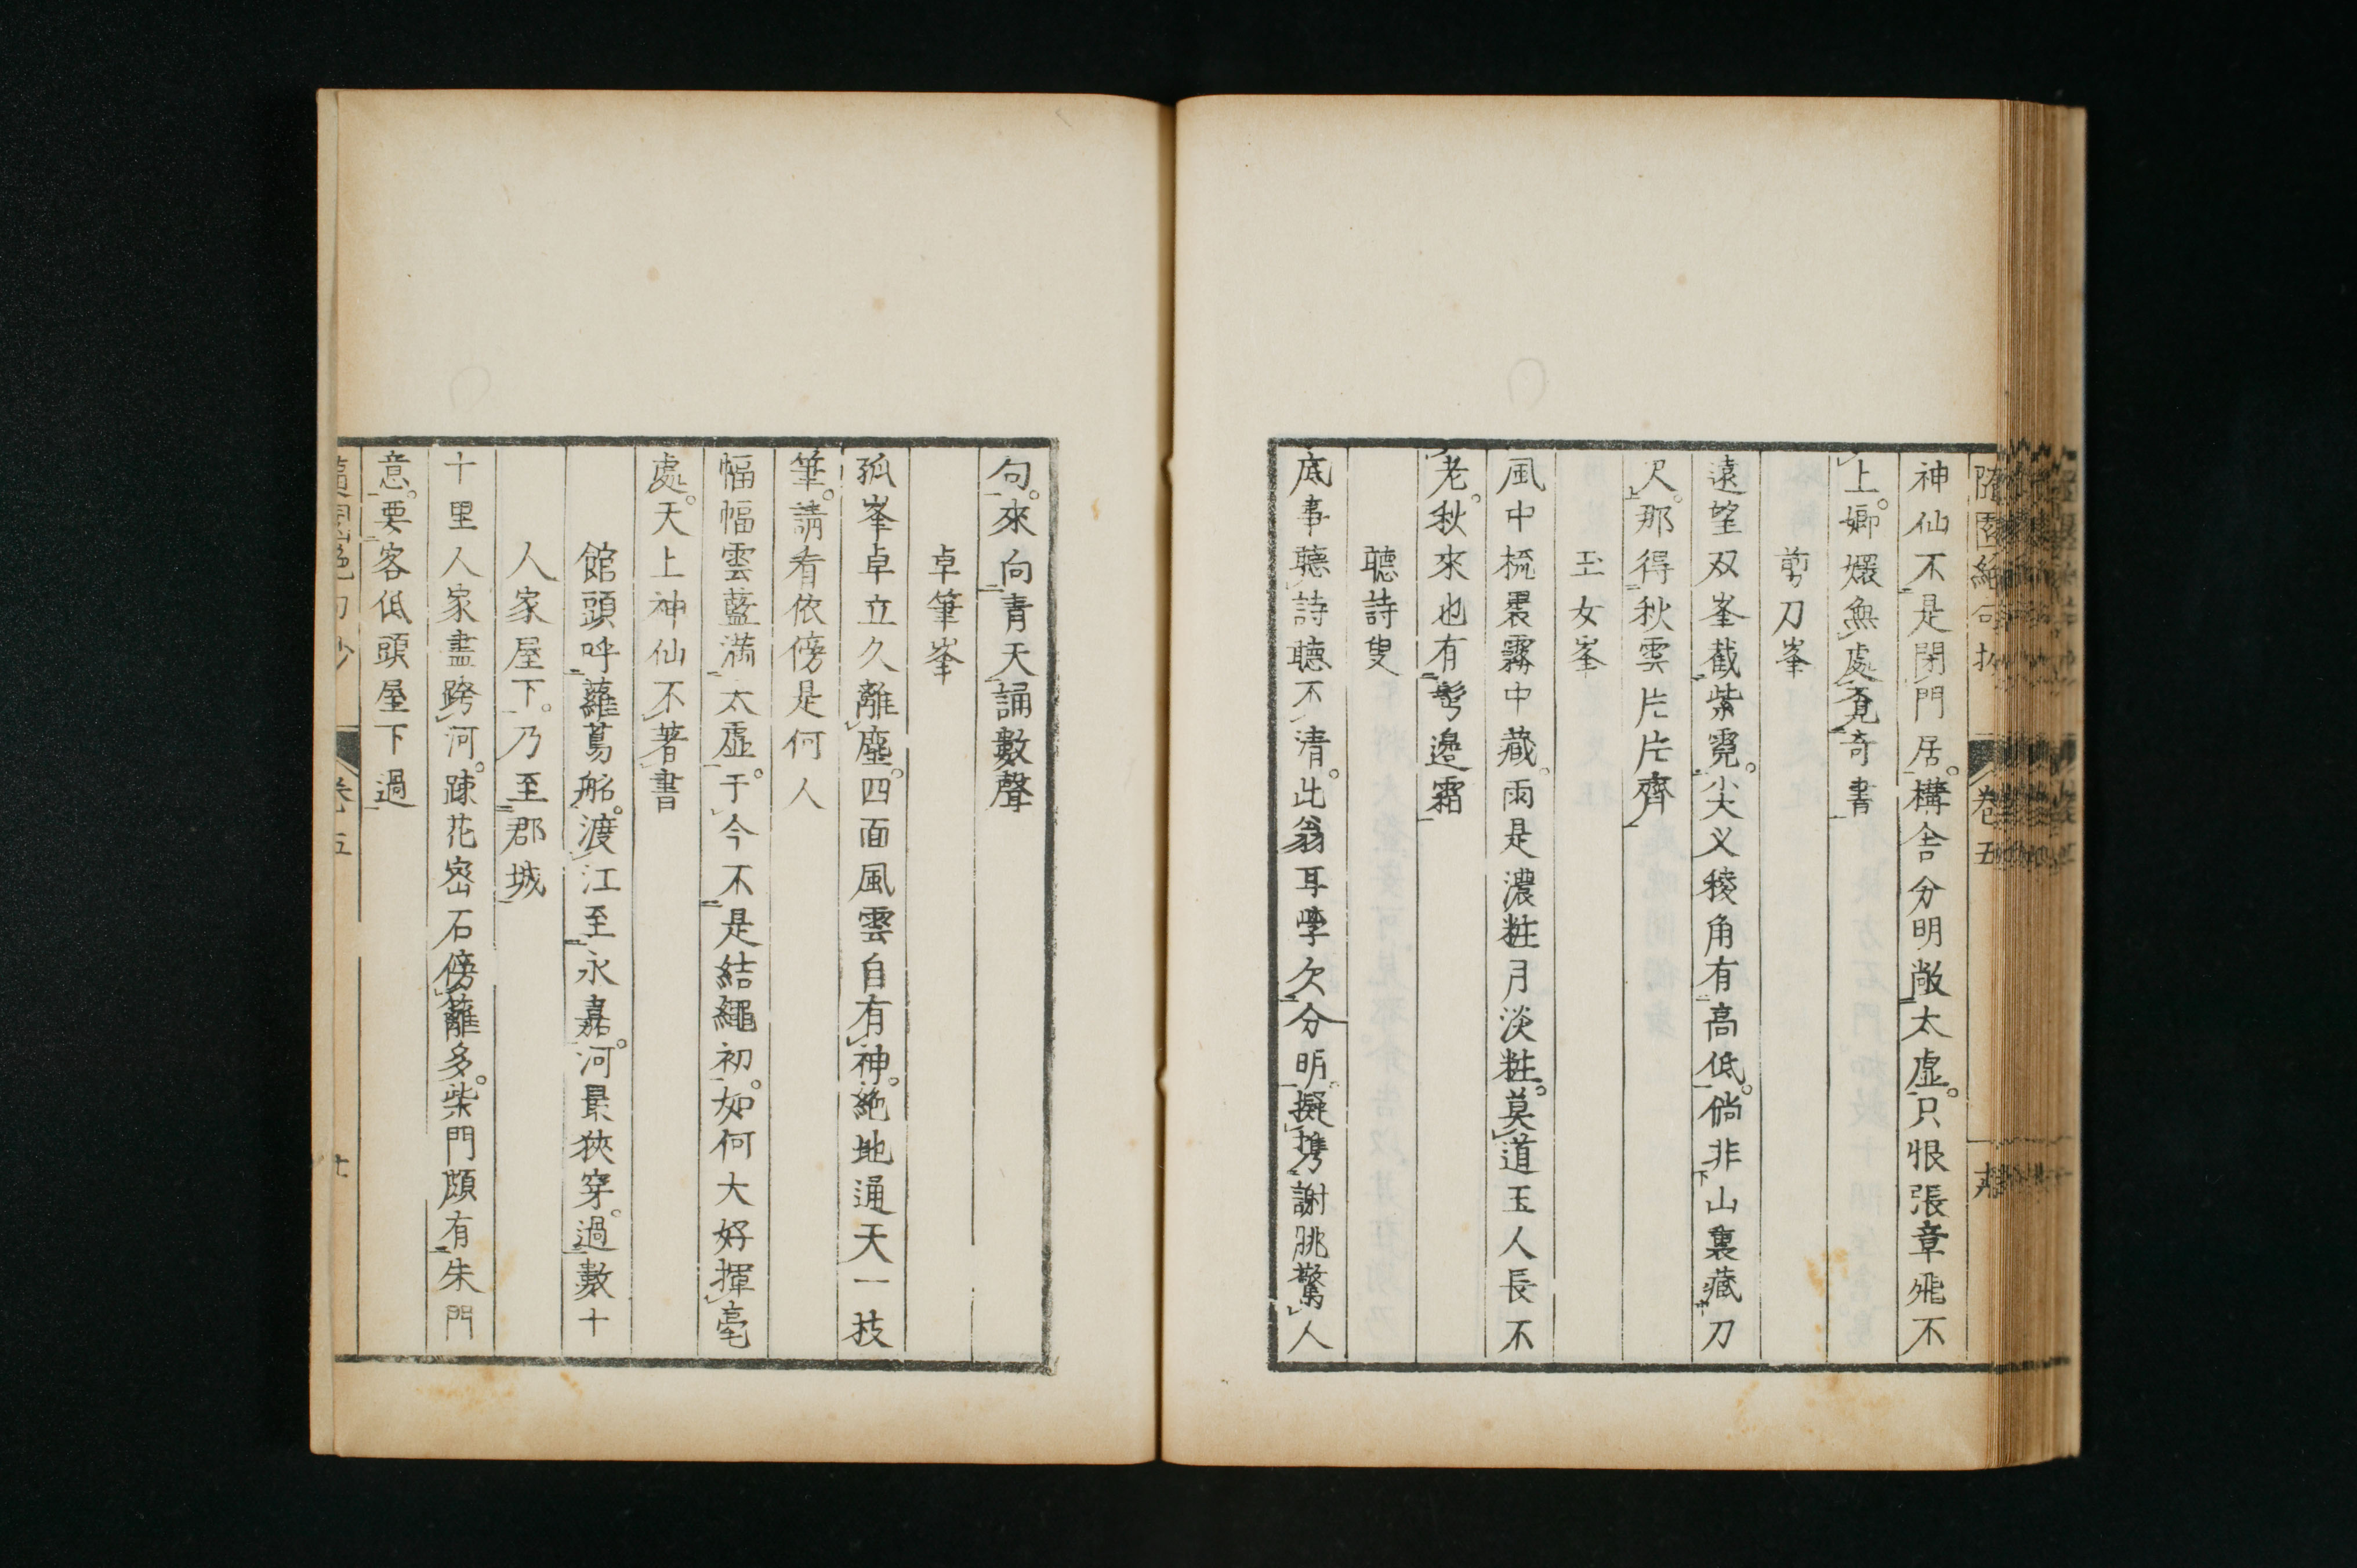 隨園絕句抄 卷五
神仙不是閉門居。構舎分明敞太虛。只恨張章飛不
上。嫏嬛無處覔奇書
剪刀峯
遠望双峯截紫霓。尖义稜角有高低。倘非山裏藏刀
尺。那得秋雲片片齊
玉女峯
風中梳裹霧中藏。雨是濃粧月淡粧。莫道玉人長不
老。秋來也有髩邊霜
聽詩叟
底事聽詩聽不清。此翁耳學欠分明。擬携謝朓驚人
句。來向青天誦數聲
卓筆峯
孤峯卓立久離塵。四面風雲自有神。絕地通天一枝
筆。請看依傍是何人
幅幅雲藍滿太虛。于今不是結繩初。如何大好揮毫
處。天上神仙不著書
館頭呼蘿蔦船。渡江至永嘉。河最狹穿。過數十
人家屋下。乃至郡城
十里人家盡跨河。踈花密石傍籬多。柴門頗有朱門
意。要客低頭屋下過
卷五